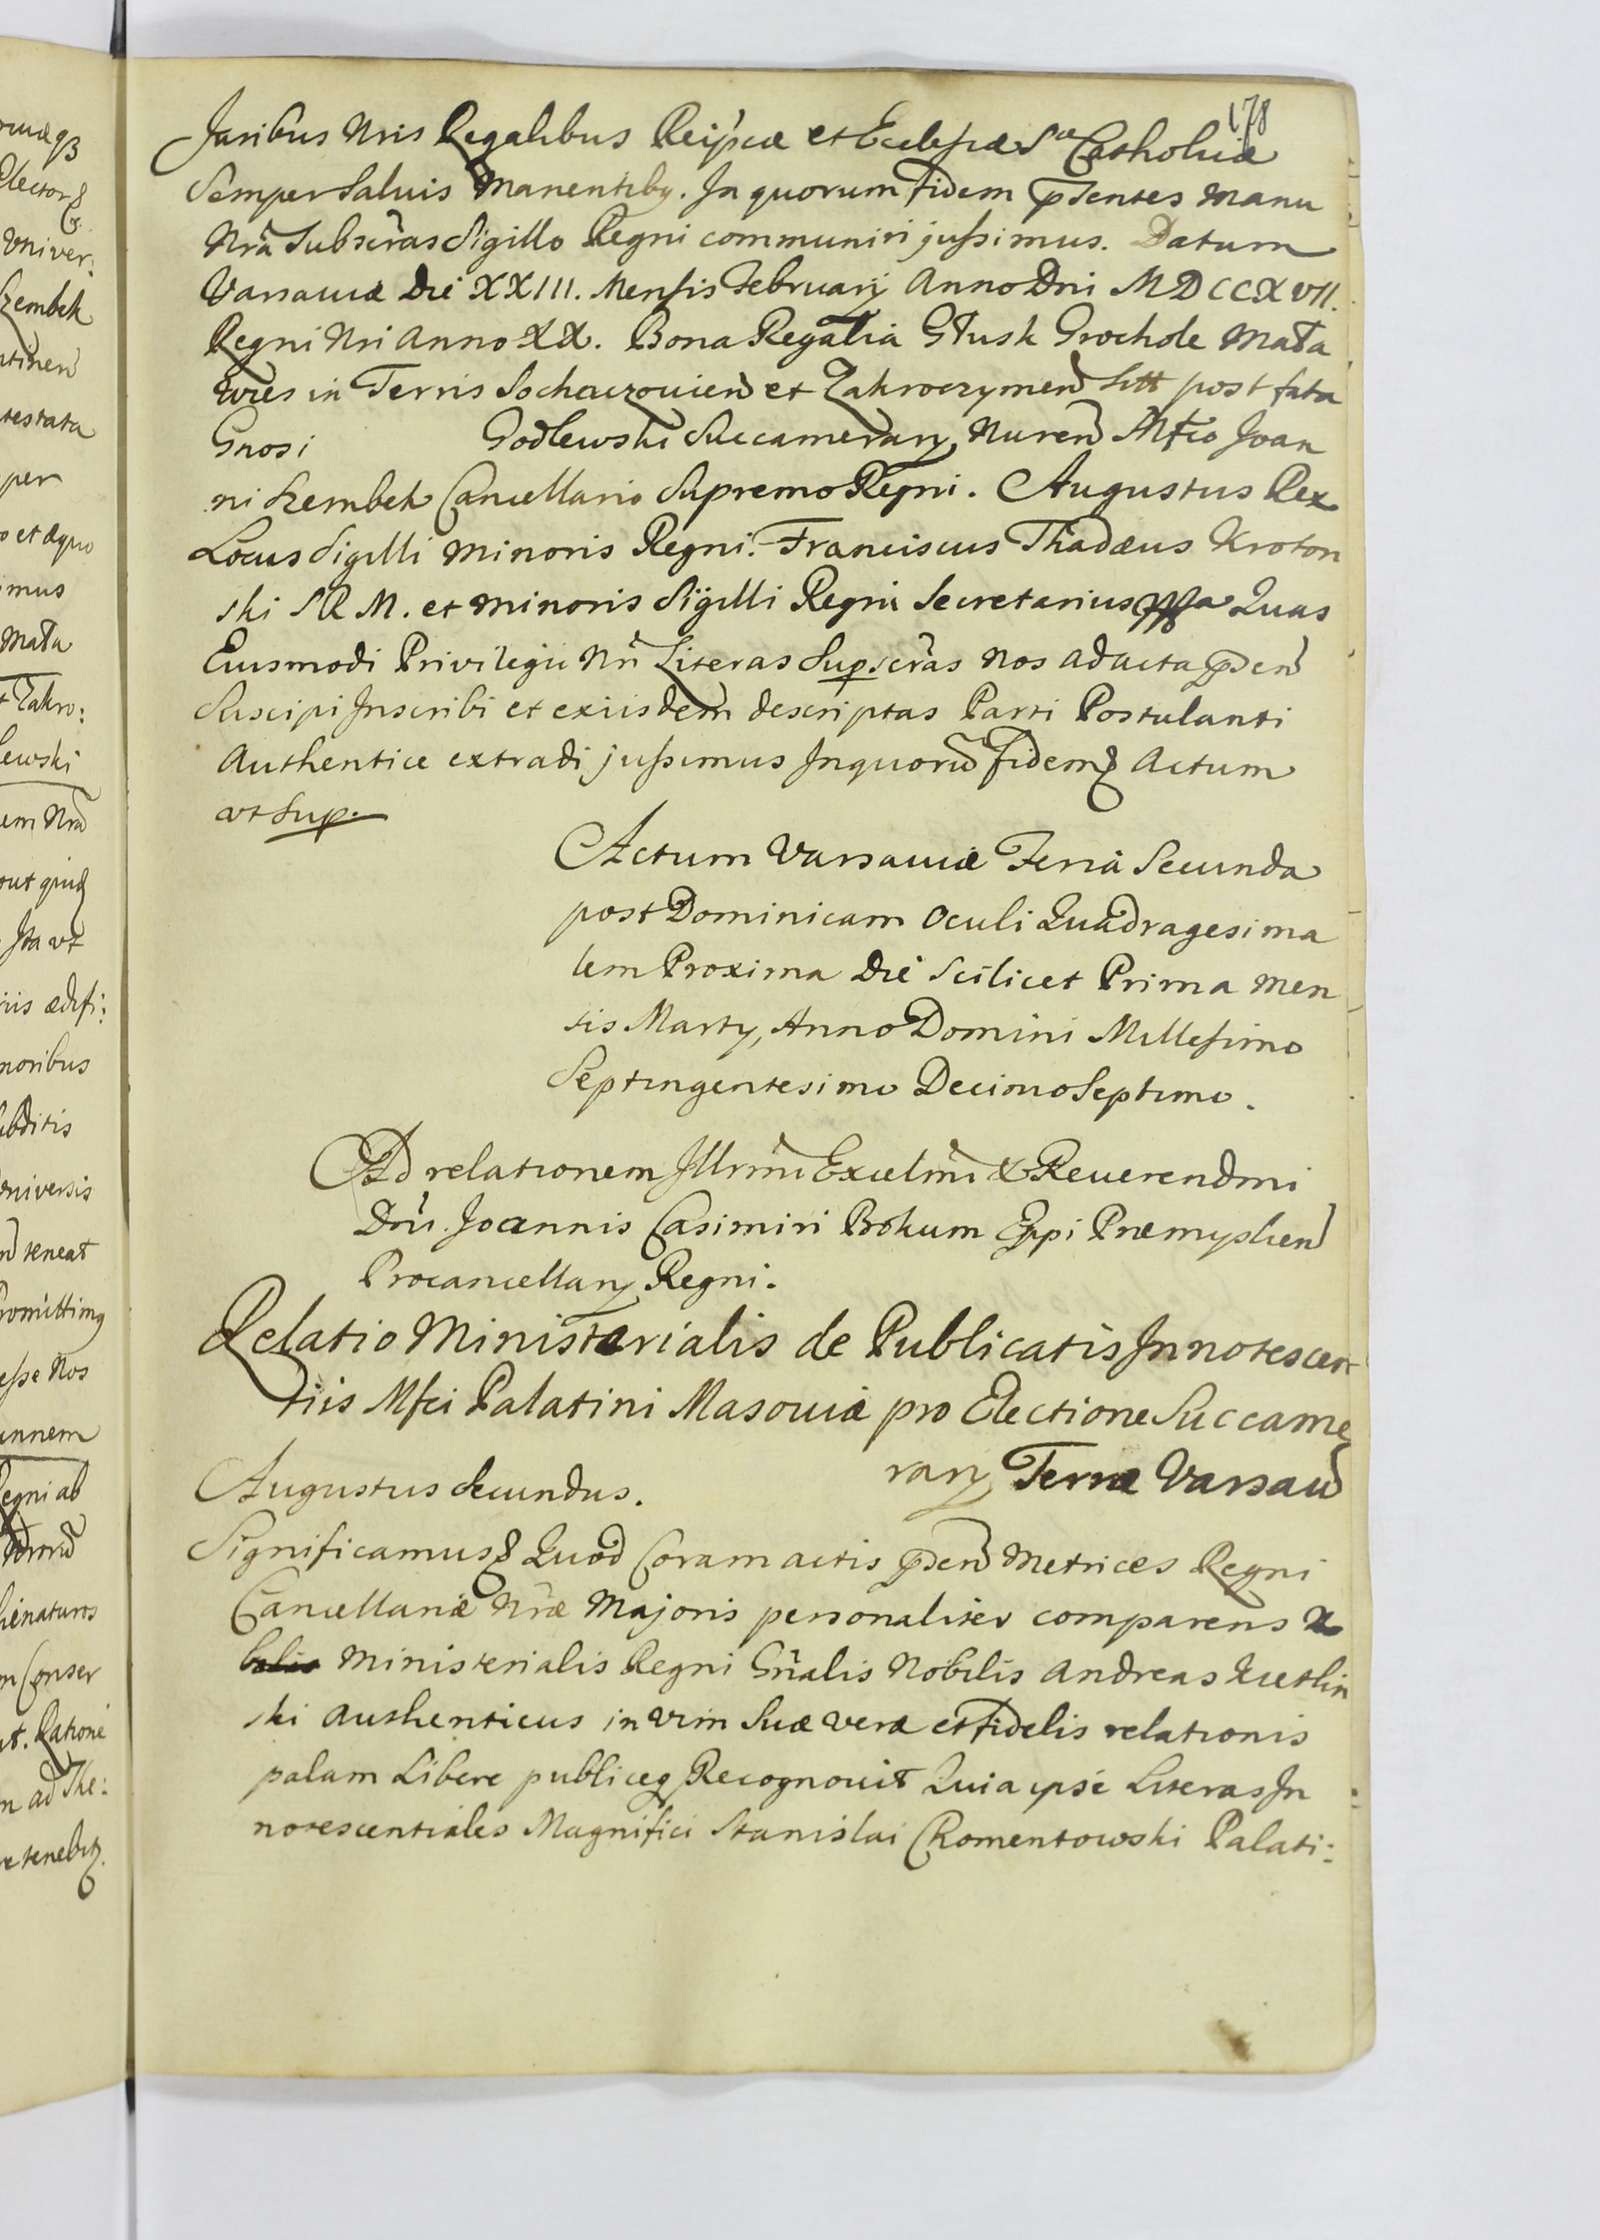 178
Juribus Nris Regalibus Reipcæ et Ecclesiæ Stæ Catholicæ
Semper Salvis Manentibq. In quorum fidem pntes manu
Nrã Subscrãs Sigillo Regni communiri jussimus. Datum
Varsaviæ Die XXIII. Mensis Februarij Anno Dni MDCCXVII.
Regni Nri Anno XX. Bona Regalia Głusk Grochole Mała
wies in Terris Sochaczovien et Zakroczymen Sitt post fata
Gnosi Godlewski Succamerarij Nuren Mfco Joan
ni Szembek Cancellario Supremo Regni. Augustus Rex
Locus Sigilli minoris Regni. Franciscus Thadæus Kroton
ski S R M. et minoris Sigilli Regni Secretarius Quas
Eiusmodi Privilegii Nri Literas Supscrãs Nos ad acta pnsen
Suscipi Inscribi et exiisdem descriptas Parti Postulanti
Authentice extradi jussimus In quoru fidem Actum
ut Sup.
Actum Varsaviæ Feriâ Secunda
post Dominicam Oculi Quadragesima
lem Proxima Die Scilicet Prima Men
sis Martij, Anno Domini Millesimo
Septingentesimo Decimo Septimo.
Ad relationem Illrmi Excelmi & Reverendmi
Dni Joannis Casimiri Bokum Eppi Præmyslien
Procancellarij Regni.
Relatio Ministerialis de Publicatis Innotescen
tiis Mfci Palatini Masoviæ pro Electione Succame
rarij Terræ Varsav
Augustus Secundus.
Significamus Quod Coram actis pnsen Metrices Regni
Cancellariæ Nræ Majoris personaliter comparens
Ministerialis Regni Gnalis Nobilis Andreas Kietlin
ski authenticus in vim Suæ veræ et fidelis relationis
palam Libere publiceq Recognovit Quia ipse Literas In
notescentiales Magnifici Stanislai Chomentowski Palati: